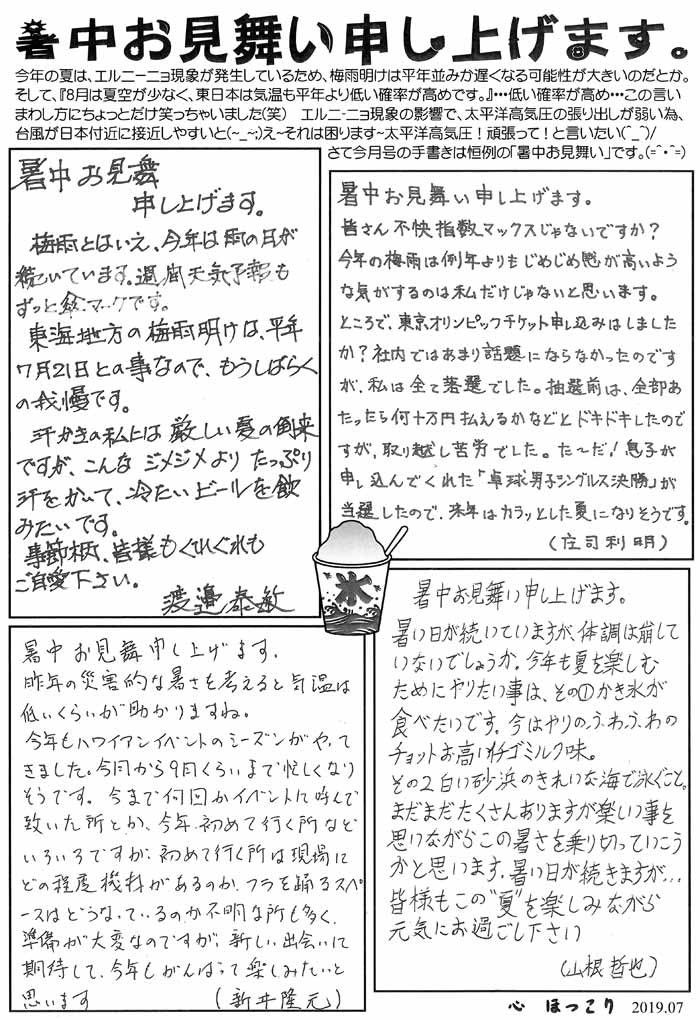 暑中お見舞い申し上げます。
今年の夏は、エルニーニョ現象が発生しているため、梅雨明けは平年並みか遅くなる可能性が大きいのだとか。
そして、『8月は夏空が少なく、東日本は気温も平年より低い確率が高めです。』…低い確率が高め…この言い
まわし方にちょっとだけ笑っちゃいました(笑)　エルニーニョ現象の影響で、太平洋高気圧の張り出しが弱い為、
台風が日本付近に接近しやすいと(~_~;)え~それは困ります~太平洋高気圧！頑張って！と言いたい(^_^)/
さて今月号の手書きは恒例の「暑中お見舞い」です。(=^・^=)
暑中お見舞
申し上げます。
梅雨とはいえ、今年は雨の日が
続いています。週間天気予報も
ずっと傘マークです。
東海地方の梅雨明けは、平年
7月21日との事なので、もうしばらく
の我慢です。
汗かきの私には厳しい夏の到来
ですが、こんなジメジメよりたっぷり
汗をかいて、冷たいビールを飲
みたいです。
季節柄、皆様もくれぐれも
ご自愛下さい。
渡邉泰敏
暑中お見舞い申し上げます。
皆さん不快指数マックスじゃないですか？
今年の梅雨は例年よりもじめじめ感が高いよう
な気がするのは私だけじゃないと思います。
ところで、東京オリンピックチケット申し込みはしました
か？社内ではあまり話題にならなかったのです
が、私は全て落選でした。抽選前は、全部あ
たったら何十万円払えるかなどとドキドキしたので
すが、取り越し苦労でした。た～だ！息子が
申し込んでくれた「卓球男子シングルス決勝」が
当選したので、来年はカラッとした夏になりそうです。
(庄司利明)
氷
暑中お見舞申し上げます。
昨年の災害的な暑さを考えると気温は
低いくらいが助かりますね。
今年もハワイアンイベントのシーズンがやって
きました。今月から9月くらいまで忙しくなり
そうです。今まで何回かイベントに呼んで
致いた所とか、今年初めて行く所など
いろいろですが、初めて行く所は現場に
どの程度機材があるのか、フラを踊るスペ
ースはどうなっているのか不明な所も多く、
準備が大変なのですが、新しい出会いに
期待して、今年もがんばって楽しみたいと
思います　(新井隆元)
暑中お見舞い申し上げます。
暑い日が続いていますが、体調は崩して
いないでしょうか。今年も夏を楽しむ
ためにやりたい事は、その①かき氷が
食べたいです。今はやりのふわふわの
チョットお高いイチゴミルク味。
その2白い砂浜のきれいな海で泳ぐこと。
まだまだたくさんありますが楽しい事を
思いながらこの暑さを乗り切っていこう
かと思います。暑い日が続きますが…
皆様もこの"夏"を楽しみながら
元気にお過ごし下さい
(山根哲也)
心　ほっこり　2019.07